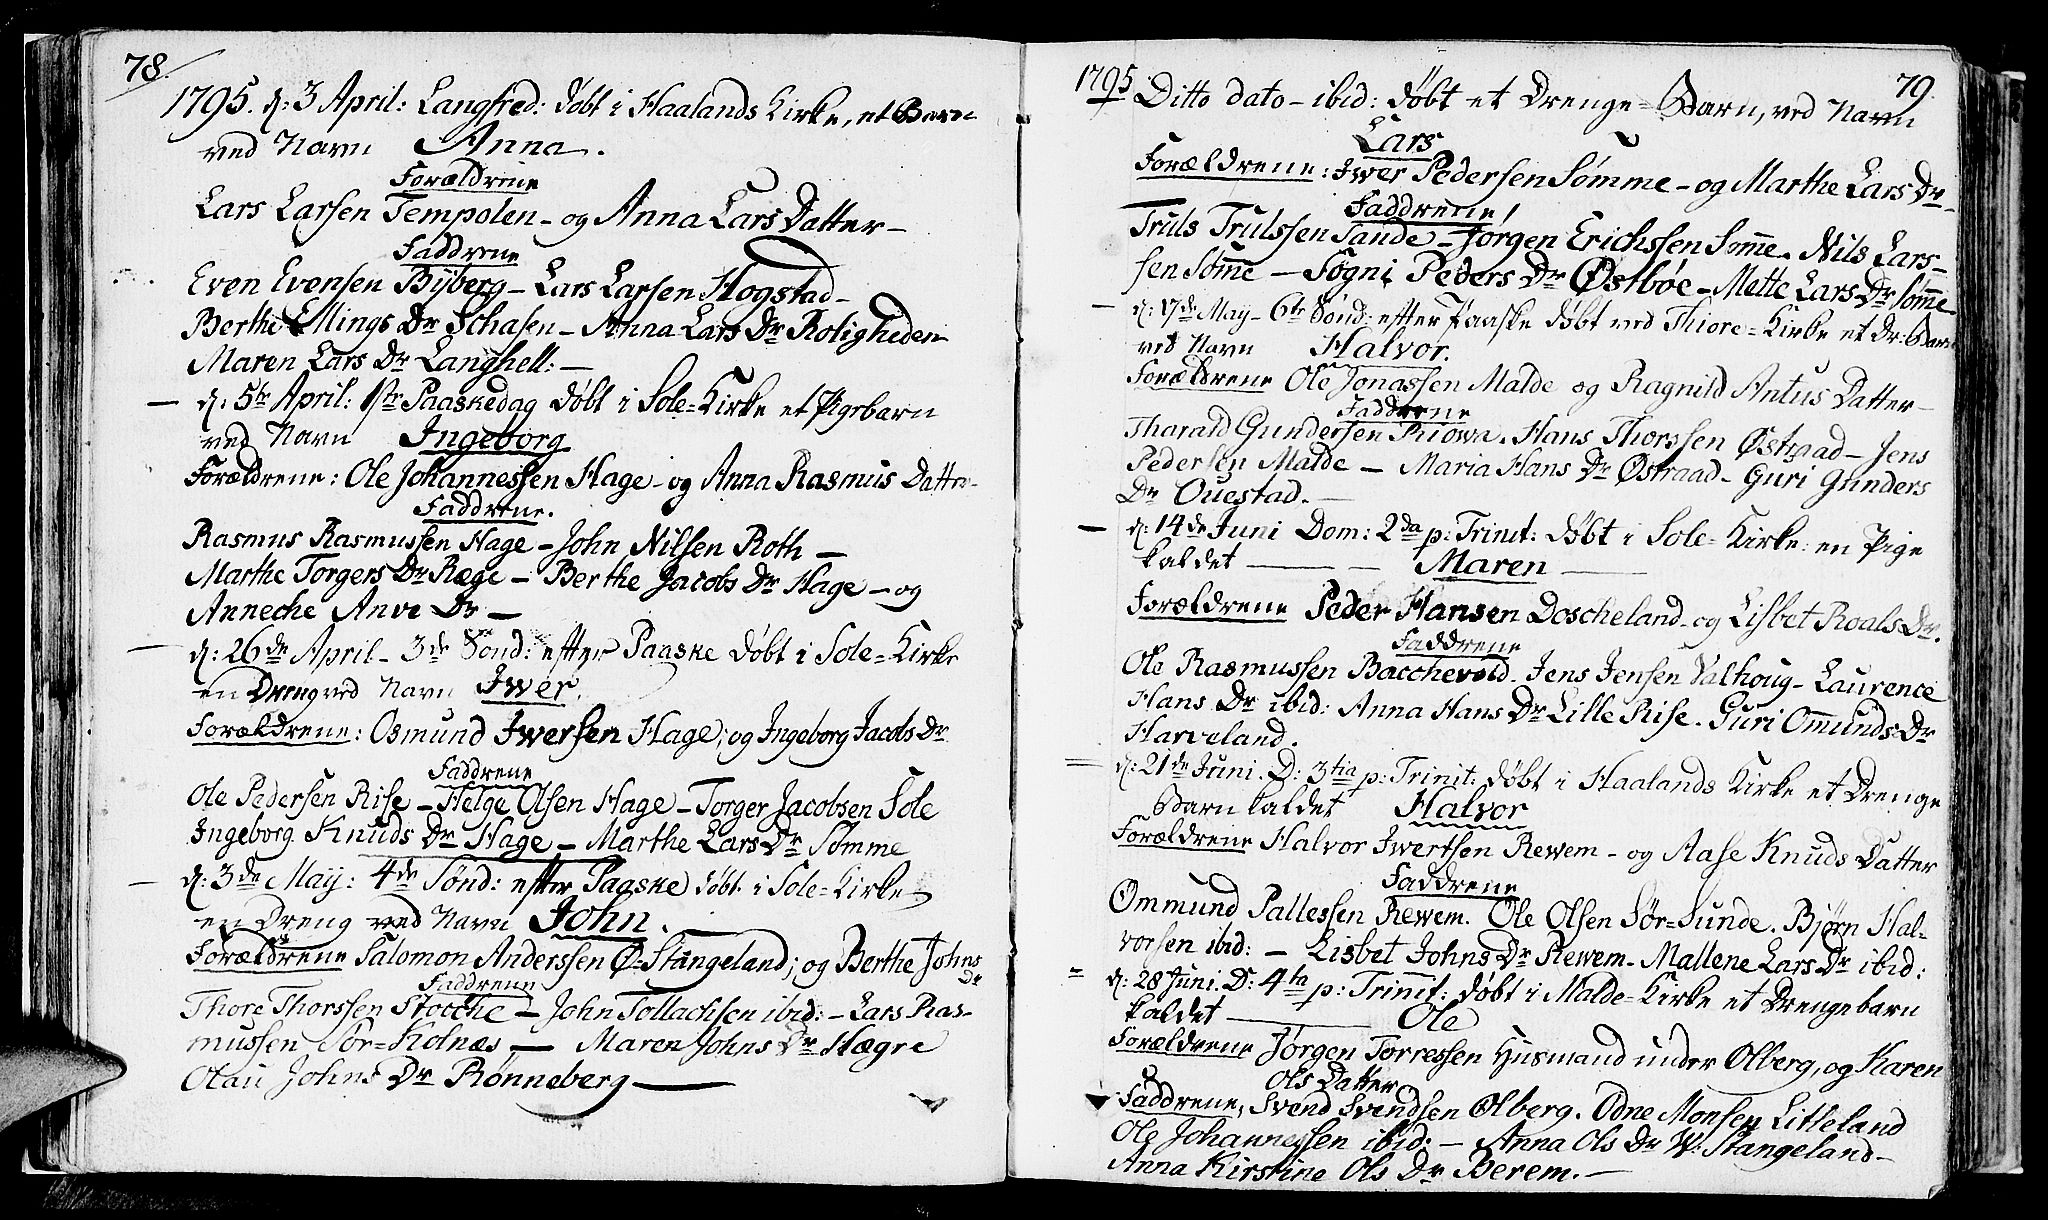 78.
1795. d: 3 April: Langfred: døbt i Haalands Kirke, et Barn
ved Navn Anna.
Forældrene
Lars Larsen Tempolen - og Anna Lars Datter -
Faddrene
Even Evensen Byberg - Lars Larsen Hogstad -
Berthe Ellings Dr Schasen - Anna Lars Dr Roligheden
Maren Lars Dr Langhell: -
- d: 5te April: 1ste Paaskedag døbt i Sole-Kirke et Pigebarn
ved Navn Ingeborg
Forældrene: Ole Johannessen Hage - og Anna Rasmus Datter -
Faddrene.
Rasmus Rasmussen Hage - John Nilsen Roth -
Marthe Torgers Dr Ræge - Berthe Jacobs Dr Hage - og
Anneche Anve Dr -
- d: 26de April - 3de Sønd: efter Paaske døbt i Sole-Kirke
en Dreng ved Navn Iwer.
Forældrene: Osmund Iwersen Hage; og Ingeborg Jacobs Dr
Faddrene
Ole Pedersen Rise - Helge Olsen Hage - Torger Jacobsen Sole
Ingeborg Knuds Dr Hage - Marthe Lars Dr Sømme
- d: 3de May: 4de Sønd: efter Paaske døbt i Sole-Kirke
en Dreng ved Navn John.
Forældrene Salomon Anderssen Ø-Stangeland; og Berthe Johns
Dr
Faddrene
Thore Thorssen Stocche - John Tollachsen ibid: - Lars Ras-
mussen Sør-Kolnæs - Maren Johns Dr Hægre
Olau Johns Dr Rønneberg -
1795. 79.
Ditto dato - ibid: døbt et Drenge-Barn, ved Navn
Lars
Forældrene: Iwer Pedersen Sømme - og Marthe Lars Dr -
Faddrene!
Truls Trulssen Tande - Jørgen Erichssen Somme. Nils Lars-
sen Sømme - Søgni Peders Dr Østbøe - Mette Lars Dr Sømme
- d: 17de May - 6te Sønd: efter Paaske døbt ved Thiore-Kirke et Dr: Barn
ved Navn Halvor.
Forældrene Ole Jonassen Malde og Ragnild Antus Datter -
Faddrene
Tharald Gundersen Riowa. Hans Thorssen Østraad - Jens
Pedersen Malde - Maria Hans Dr Østraad - Guri Gunders
Dr Ouestad. -
- d: 14de Juni Dom: 2da p: Trinit: døbt i Sole-Kirke: en Pige
kaldet - - Maren -
Forældrene Peder Hansen Doscheland - og Lisbet Roals Dr.
Faddrene
Ole Rasmussen Bacchevold. Jens Jensen Valhoug - Laurence
Hans Dr ibid: Anna Hans Dr Lille Rise. Guri Ommunds Dr
Harveland.
= d: 21de Juni. D: 3tia p: Trinit: døbt i Haalands Kirke et Drenge
Barn kaldet Halvor
Forældrene Halvor Iwertsen Rewem - og Aase Knuds Datter
Faddrene
Ommund Pallessen Rewem. Ole Olsen Sør-Sunde. Bjørn Hal-
vorsen ibid: - Lisbet Johns Dr Rewem - Mallene Lars Dr ibid:
= d: 28 Juni. D: 4ta p: Trinit: døbt i Malde-Kirke et Drengebarn
kaldet - Ole
Forældrene Jørgen Torressen Husmand under Olberg, og Karen
Ols Datter
Faddrene, Svend Svendsen Olberg. Odne Monsen Litleland
Ole Johannessen ibid: - Anna Ols Dr W: Stangeland -
Anna Kirstine Ols Dr Berem. -